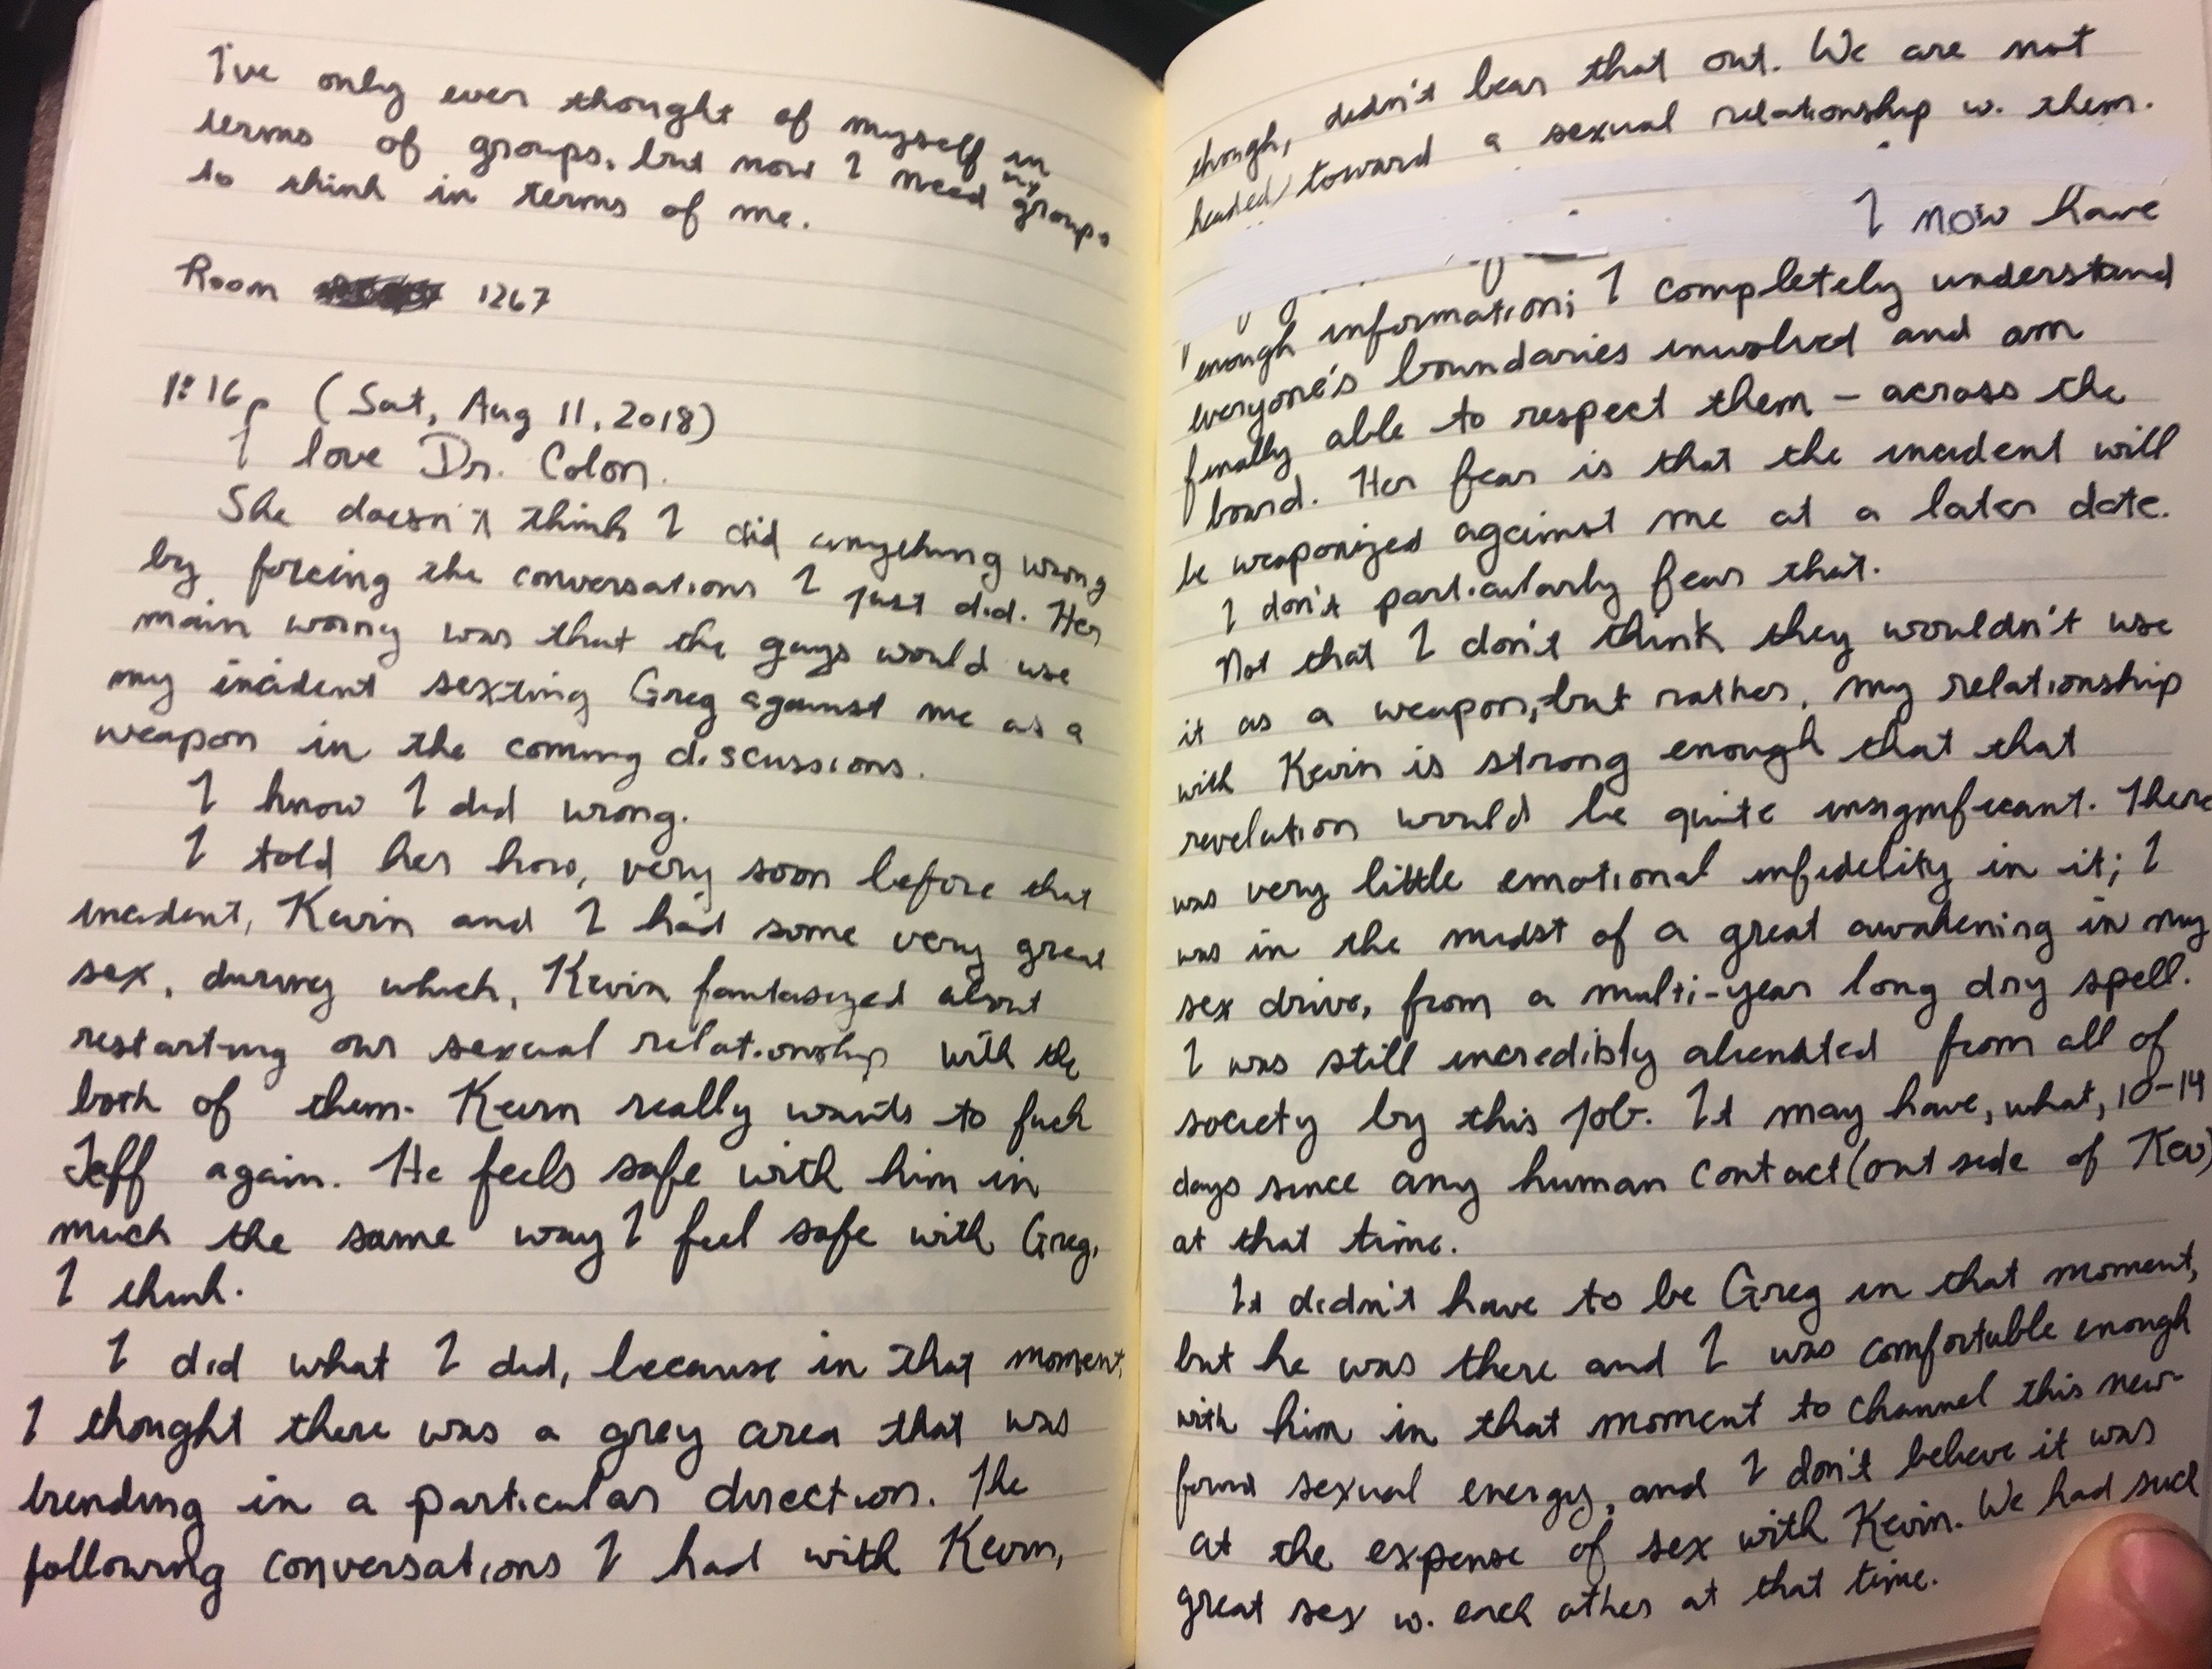 I've only ever thought of myself in
terms of groups, but now I need my groups
to think in terms of me.
Room 1267
1:16p (Sat, Aug 11, 2018)
I love Dr. Colon.
She doesn't think I did anything wrong
by forcing the conversations I just did. Her
main worry was that the guys would use
my incident sexting Greg against me as a
weapon in the coming discussions.
I know I did wrong.
I told her how, very soon before that
incident, Kevin and I had some very great
sex, during which, Kevin fantasized about
restarting our sexual relationship with the
both of them. Kevin really wants to fuck
Jeff again. He feels safe with him in
much the same way I feel safe with Greg,
I think.
I did what I did, because in that moment,
I thought there was a grey area that was
trending in a particular direction. The
following conversations I had with Kevin,
though, didn't bear that out. We are not
headed toward a sexual relationship w. them.
I now have
enough information; I completely understand
everyone's boundaries involved and am
finally able to respect them – across the
board. Her fear is that the incident will
be weaponized against me at a later date.
I don't particularly fear that.
Not that I don't think they wouldn't use
it as a weapon, but rather, my relationship
with Kevin is strong enough that that
revelation would be quite insignificant. There
was very little emotional infidelity in it; I
was in the midst of a great awakening in my
sex drive, from a multi-year long dry spell.
I was still incredibly alienated from all of
society by this job. It may have, what, 10-14
days since any human contact (outside of Kev)
at that time.
It didn't have to be Greg in that moment,
but he was there and I was comfortable enough
with him in that moment to channel this new-
found sexual energy, and I don't believe it was
at the expense of sex with Kevin. We had such
great sex w. each other at that time.